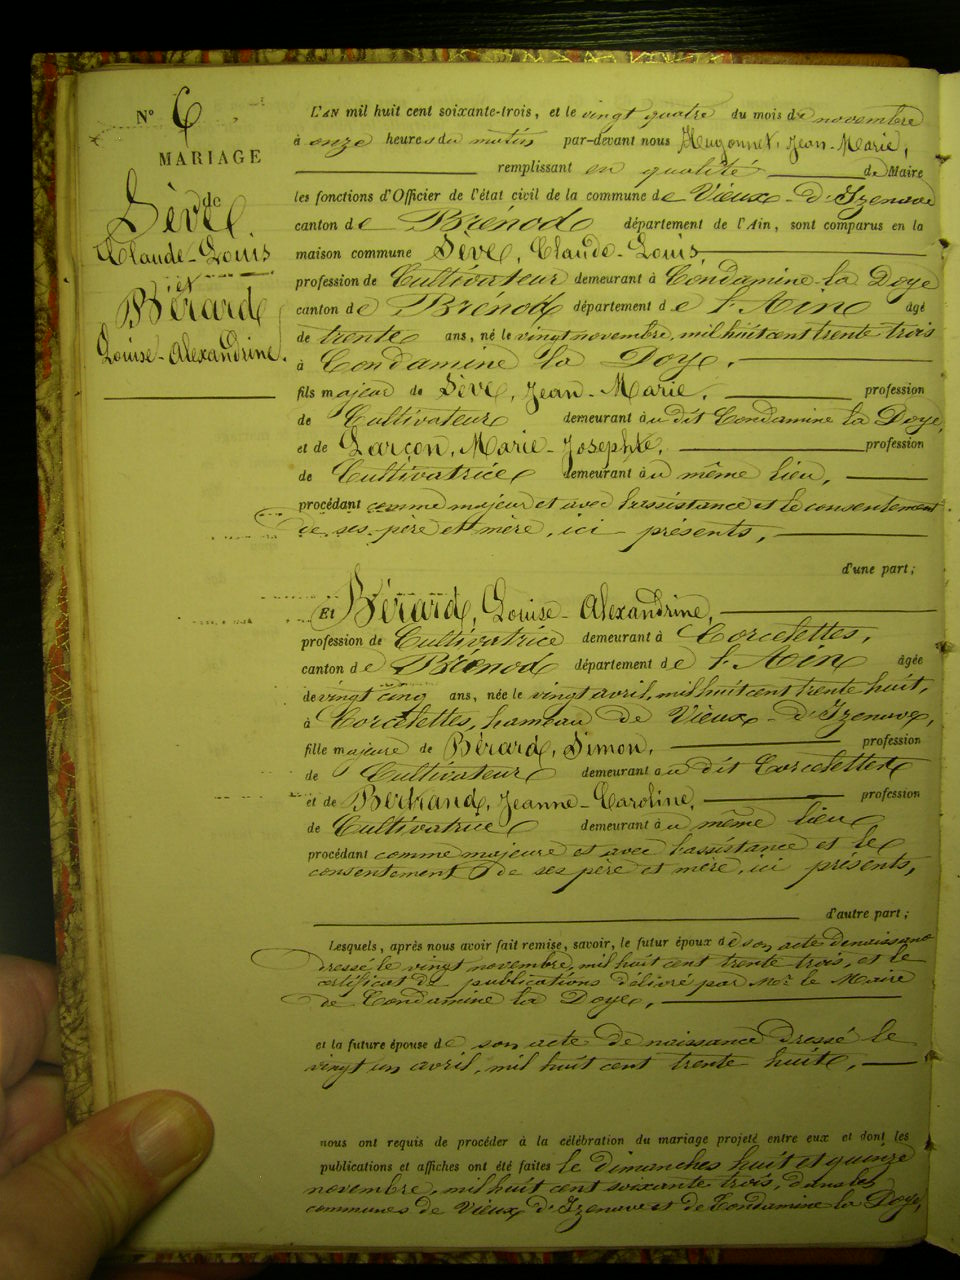 N° 6
MARIAGE
de
Sève
Claude-Louis
et
Bérard
Louise-Alexandrine.
L'AN mil huit cent soixante-trois, et le vingt quatre du mois de novembre
à onze heures du matin par-devant nous Hugonnet, Jean-Marie,
remplissant en qualité de Maire
les fonctions d'Officier de l'état civil de la commune de Vieux-d'Izenave
canton de Brénod département de l'Ain, sont comparus en la
maison commune Sève, Claude-Louis,
profession de Cultivateur demeurant à Condamine la Doye
canton de Brénod département de l'Ain âgé
de trente ans, né le vingt novembre, mil huit cent trente trois
à Condamine la Doye,
fils majeur de Sève, Jean-Marie, profession
de Cultivateur demeurant au dit Condamine la Doye,
et de Larçon, Marie-Josephte, profession
de Cultivatrice demeurant au même lieu,
procédant comme majeur et avec l'assistance et le consentement
de ses père et mère, ici présents,
d'une part;
Et Bérard, Louise-Alexandrine,
profession de Cultivatrice demeurant à Corcelettes,
canton de Brénod département de l'Ain âgée
de vingt cinq ans, née le vingt avril, mil huit cent trente huit,
à Corcelettes, hameau de Vieux-d'Izenave,
fille majeure de Bérard, Simon, profession
de Cultivateur demeurant au dit Corcelettes
et de Bertrand, Jeanne-Caroline, profession
de Cultivatrice demeurant au même lieu
procédant comme majeure et avec l'assistance et le
consentement de ses père et mère, ici présents,
d'autre part;
Lesquels, après nous avoir fait remise, savoir, le futur époux de son acte de naissance
dressé le vingt novembre, mil huit cent trente trois, et le
certificat de publications délivré par Mr le Maire
de Condamine la Doye,
et la future épouse de son acte de naissance dressé le
vingt un avril, mil huit cent trente huit,
nous ont requis de procéder à la célébration du mariage projeté entre eux et dont les
publications et affiches ont été faites le dimanches huit et quinze
novembre, mil huit cent soixante trois, dans les
communes de Vieux d'Izenave et de Condamine la Doye,